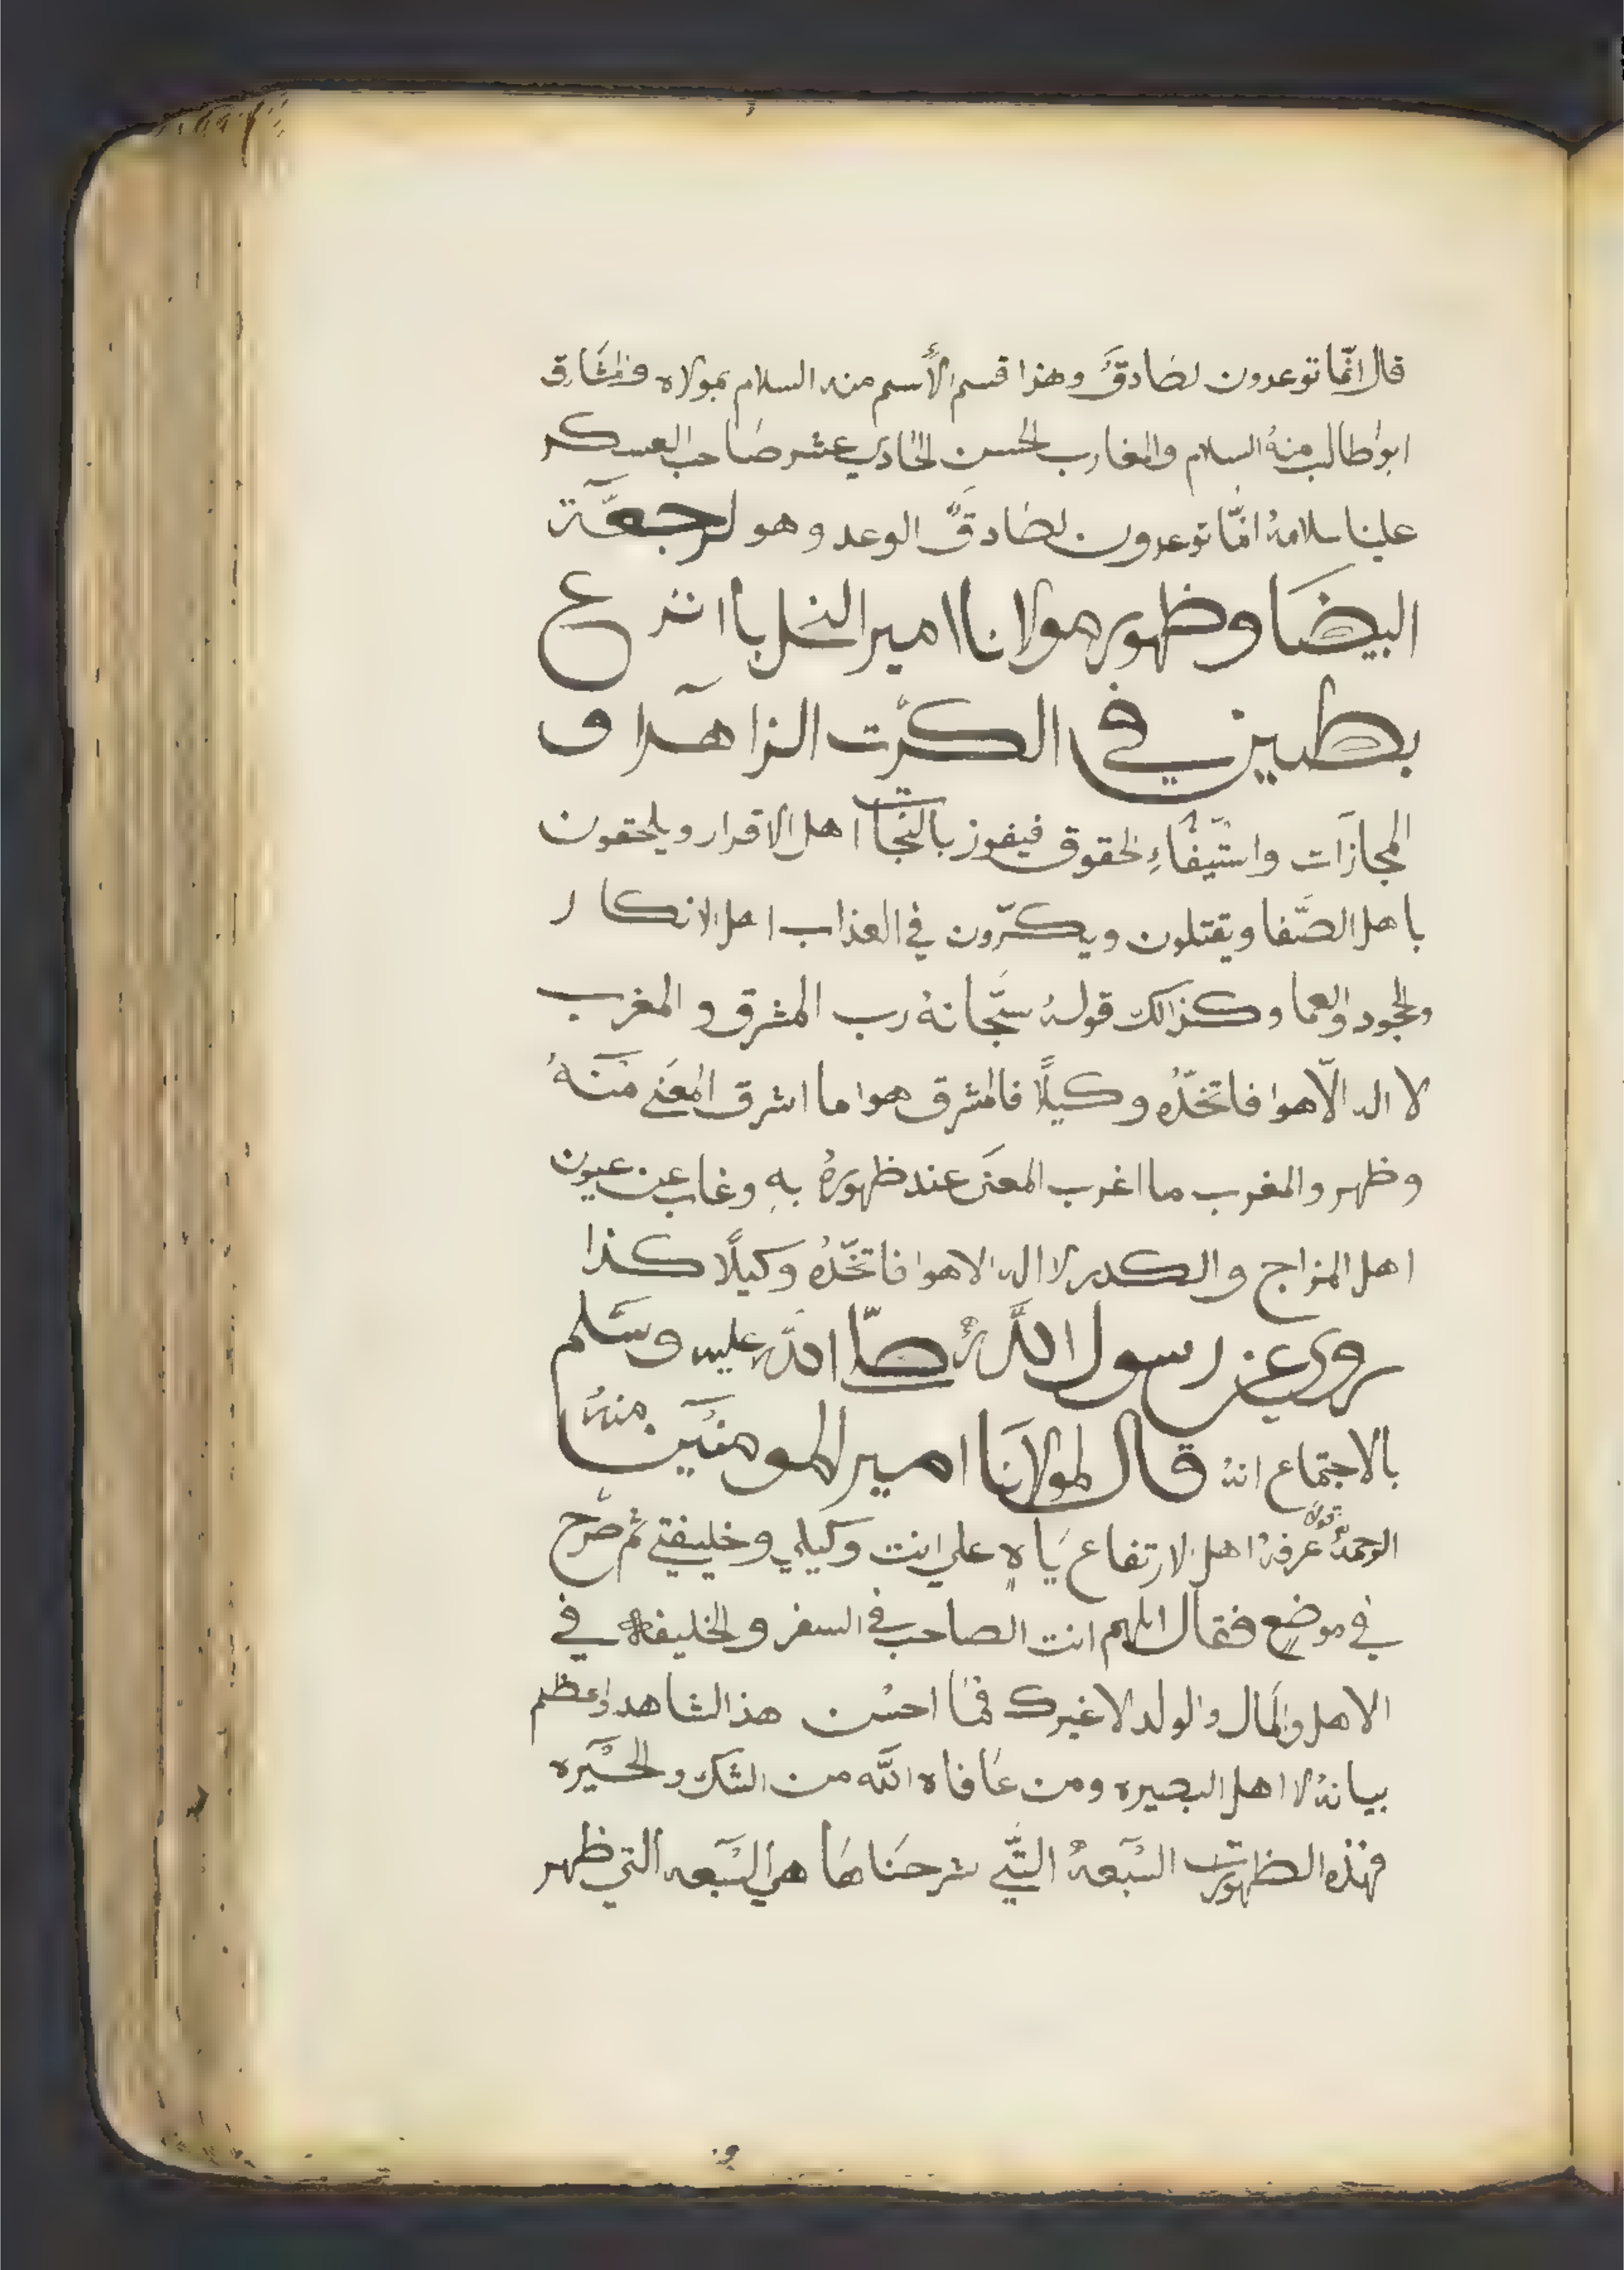 قال انّما توعدون لصَادقٌ وهذا قسم الأسم منه السلام بمولاه فالمشَارق
ابو طالب منهُ السلام والمغارب الحسن الحَادي عشر صَاحب العسكر
علينا سلامهُ انّما توعدون لصَادقٌ الوعد وهو لرجعَّة
البيضَا وظهور مولانا امير النحل باانزع
بطين في الكرّت الزاهرا و
المجازَات واستيفَاءِ الحقوق فيفوز بالنجَات اهل الاقرار ويلحقون
باهل الصَّفا ويقتلون ويكرّون في العذاب اهل الانكار
والجحود والعما وكذالك قولهُ سبّحانهُ رب المشرق والمغرب
لا اله الّا هوا فاتخذّه وكيلًا فالمشرق هوا ما اشرق المعَنى منَهُ
وظهر والمغرب ما اغرب المعنَى عند ظهورهُ بهِ وغاب عن عيون
اهل المزاج والكدر لا اله الا هوا فاتخّذهُ وكيلًا كذا
روي عن رسول اللَّه صلّا اللَّه عليه وسَّلم
بالاجتماع انهُ قال لمولانَا امير المومنَين منهُ
الرحمهُ عرفهُ اهل الارتفاع يَاه علي انت وكيلي وخليفتي ثم صّرح
في موضع فقال اللهم انت الصاحب في السفر والخليفه في
الاهل والمَال والولد لا غيرك فمَا احسْن هذ الشاهد واعظم
بيانهُ لا اهل البصيره ومن عَافاه اللَّه من الشك والحَيْره
فهذه الظهورت السَبعهُ التّي شرحنَاها هي السَبعه التي ظهر